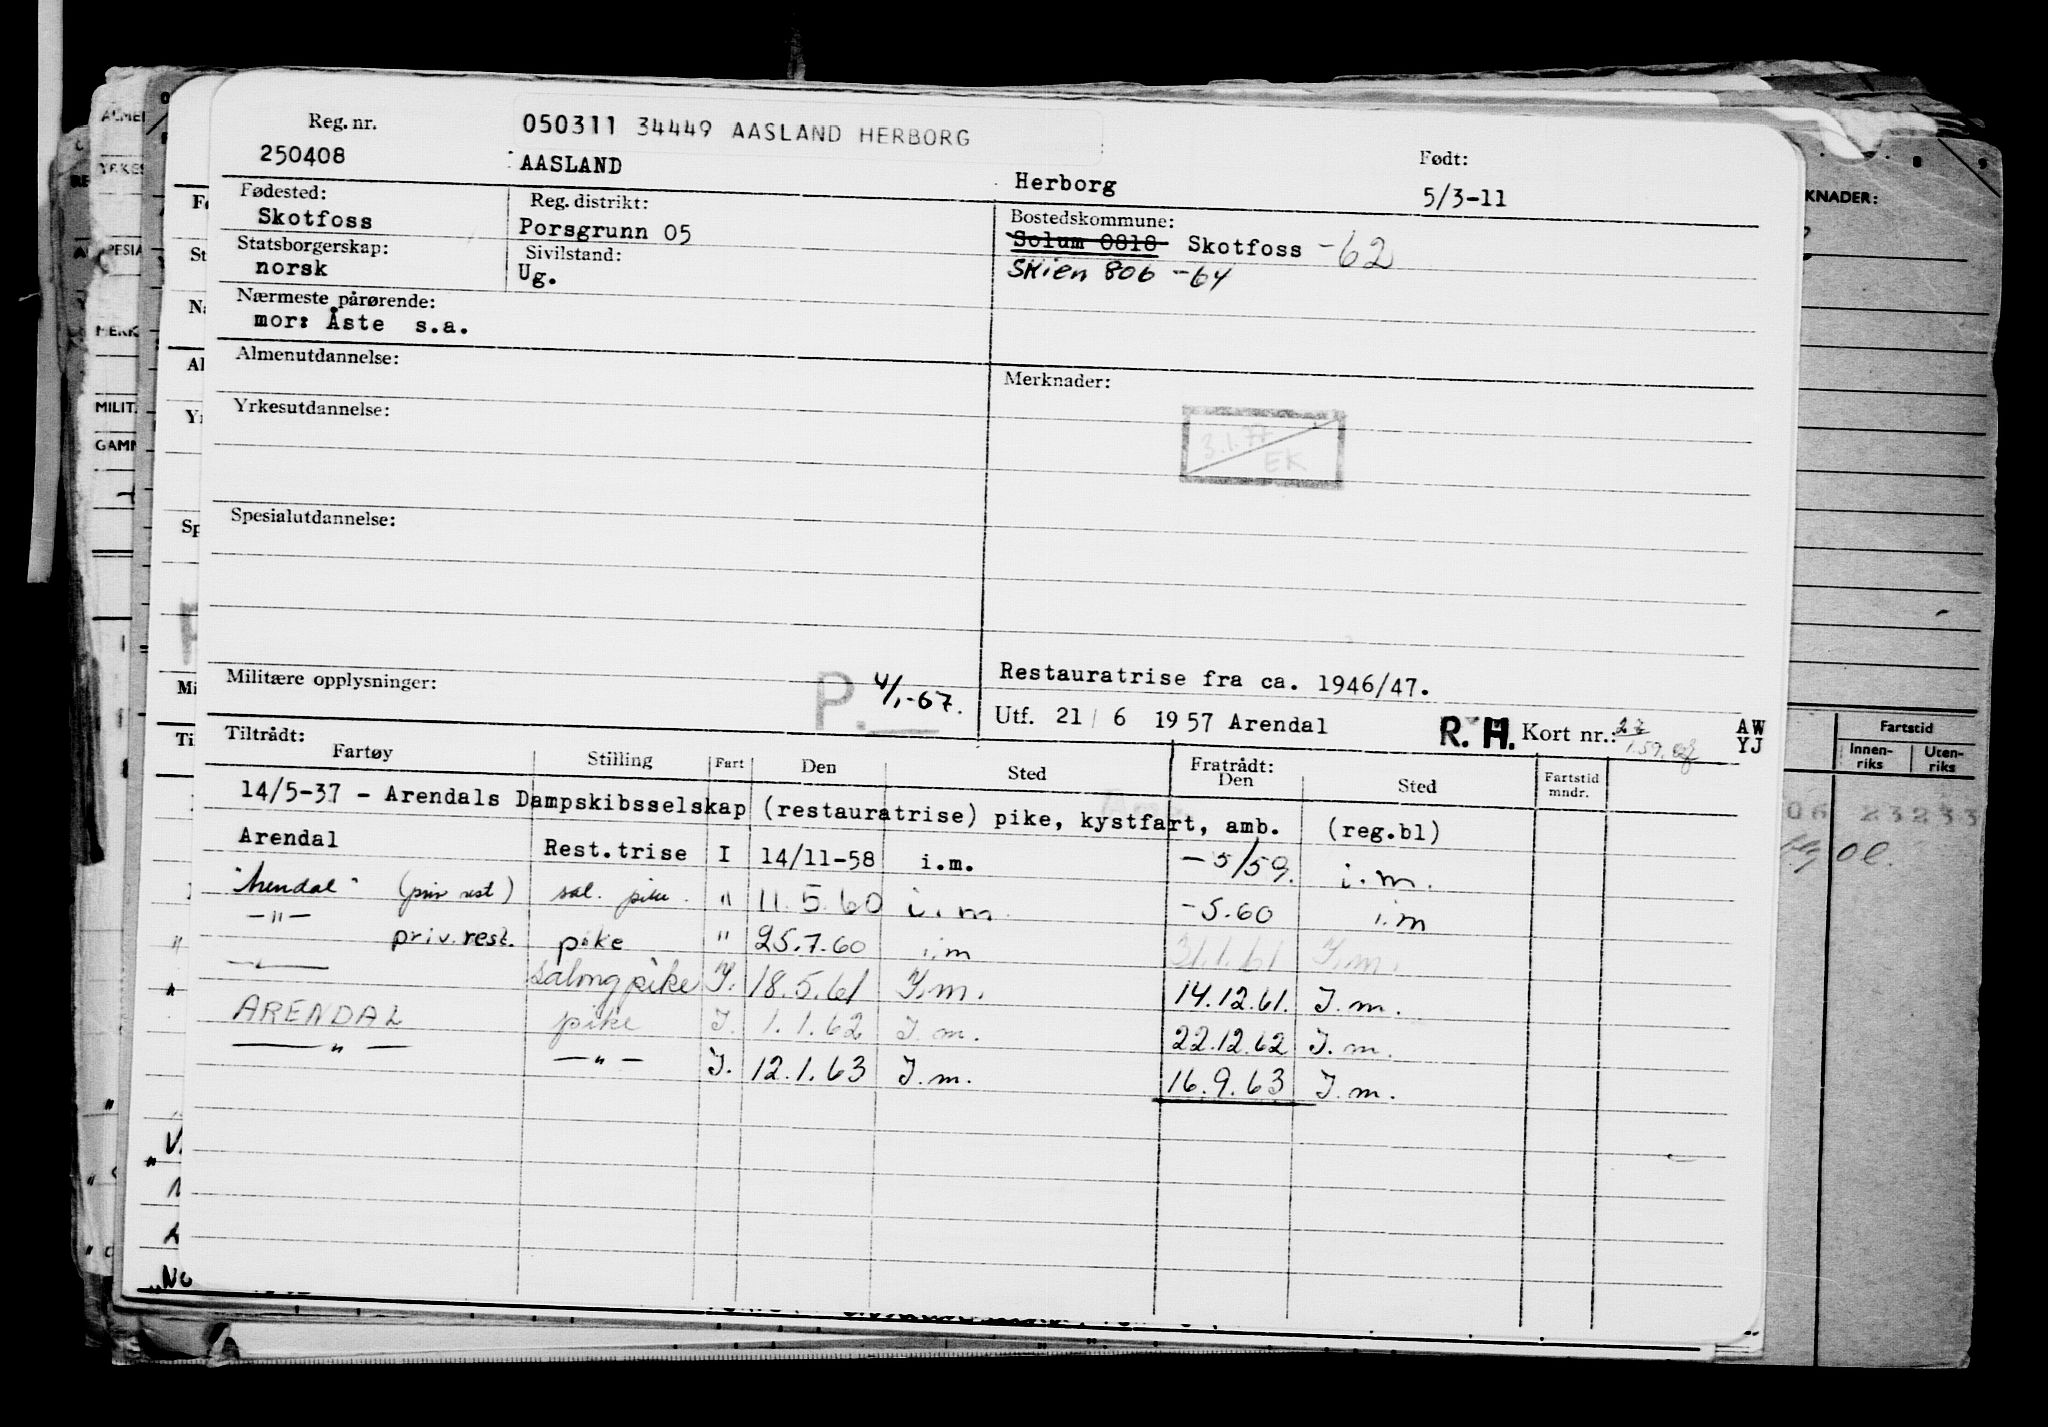 Reg. nr.
050311 34449 AASLAND HERBORG
250408
AASLAND
Herborg
Født:
5/3-11
Fødested:
Skotfoss
Reg. distrikt:
Porsgrunn 05
Bostedskommune:
Solum 0818 Skotfoss -62
Skien 806 -64
Statsborgerskap:
norsk
Sivilstand:
Ug.
Nærmeste pårørende:
mor: Åste s.a.
Almenutdannelse:
Merknader:
Yrkesutdannelse:
3.1.77
EK
Spesialutdannelse:
Restauratrise fra ca. 1946/47.
Militære opplysninger:
P. 4/1-67.
Utf. 21 / 6 1957 Arendal
R. H. Kort nr.:
AW
YJ
Tiltrådt:
Fartøy Stilling Fart Den Sted Fratrådt: Den Sted Fartstid mndr.
14/5-37 - Arendals Dampskibsselskap (restauratrise) pike, kystfart, amb. (reg.bl)
Arendal Rest.trise I 14/11-58 i.m. -5/59. i.m.
"Arendal" (priv rest) sal. pike. " 11.5.60 i.m -5.60 i.m
-"- priv. rest. pike " 25.7.60 i.m 31.1.61 I.m.
-"- salong pike I. 18.5.61 I.m. 14.12.61. I.m.
ARENDAL pike I. 1.1.62 I.m. 22.12.62 I.m.
-"- -"- I. 12.1.63 I.m. 16.9.63 I.m.
KNADER:
Fartstid
Innen-
riks
Uten-
riks
MILIT